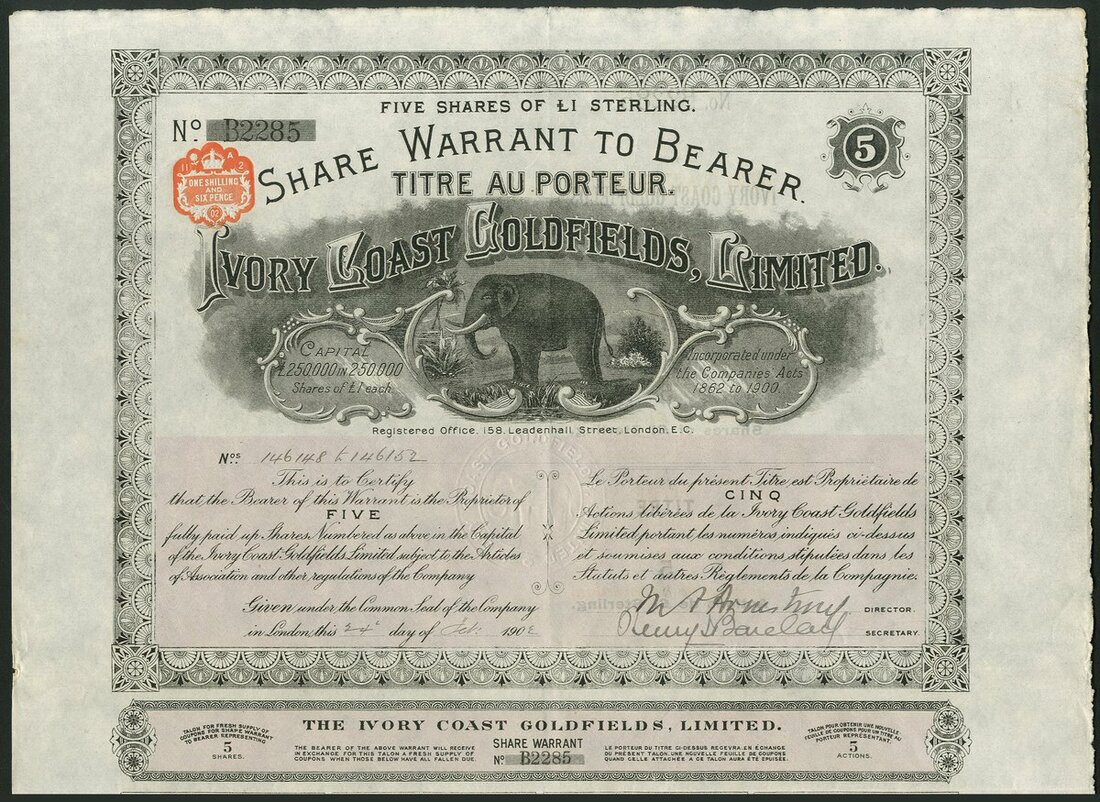 FIVE SHARES OF £1 STERLING.
No. B2285
5
SHARE WARRANT TO BEARER.
TITRE AU PORTEUR.
11 A 2
ONE SHILLING
AND
SIX PENCE
02
IVORY COAST GOLDFIELDS, LIMITED.
CAPITAL
£250,000 IN 250,000
Shares of £1 each.
Incorporated under
the Companies Acts
1862 to 1900.
Registered Office, 158, Leadenhall Street, London, E.C.
Nos. 146148 to 146152
This is to Certify
that the Bearer of this Warrant is the Proprietor of
FIVE
fully paid up Shares Numbered as above in the Capital
of the Ivory Coast Goldfields Limited subject to the Articles
of Association and other regulations of the Company
Given under the Common Seal of the Company
in London, this 24 day of 190
Le Porteur du présent Titre est Propriétaire de
CINQ
Actions libérées de la Ivory Coast Goldfields
Limited portant les numéros indiqués ci-dessus
et soumises aux conditions stipulées dans les
Statuts et autres Règlements de la Compagnie.
DIRECTOR.
Henry Barclay
SECRETARY.
TALON FOR FRESH SUPPLY OF
COUPONS FOR SHARE WARRANT
TO BEARER REPRESENTING
5
SHARES.
THE IVORY COAST GOLDFIELDS, LIMITED.
THE BEARER OF THE ABOVE WARRANT WILL RECEIVE
IN EXCHANGE FOR THIS TALON A FRESH SUPPLY OF
COUPONS WHEN THOSE BELOW HAVE ALL FALLEN DUE.
SHARE WARRANT
No. B2285
LE PORTEUR DU TITRE CI-DESSUS RECEVRA EN ECHANGE
DU PRÉSENT TALON, UNE NOUVELLE FEUILLE DE COUPONS
QUAND CELLE ATTACHÉE A CE TALON AURA ÉTÉ ÉPUISÉE.
TALON POUR OBTENIR UNE NOUVELLE
FEUILLE DE COUPONS POUR UN TITRE AU
PORTEUR REPRÉSENTANT
5
ACTIONS.